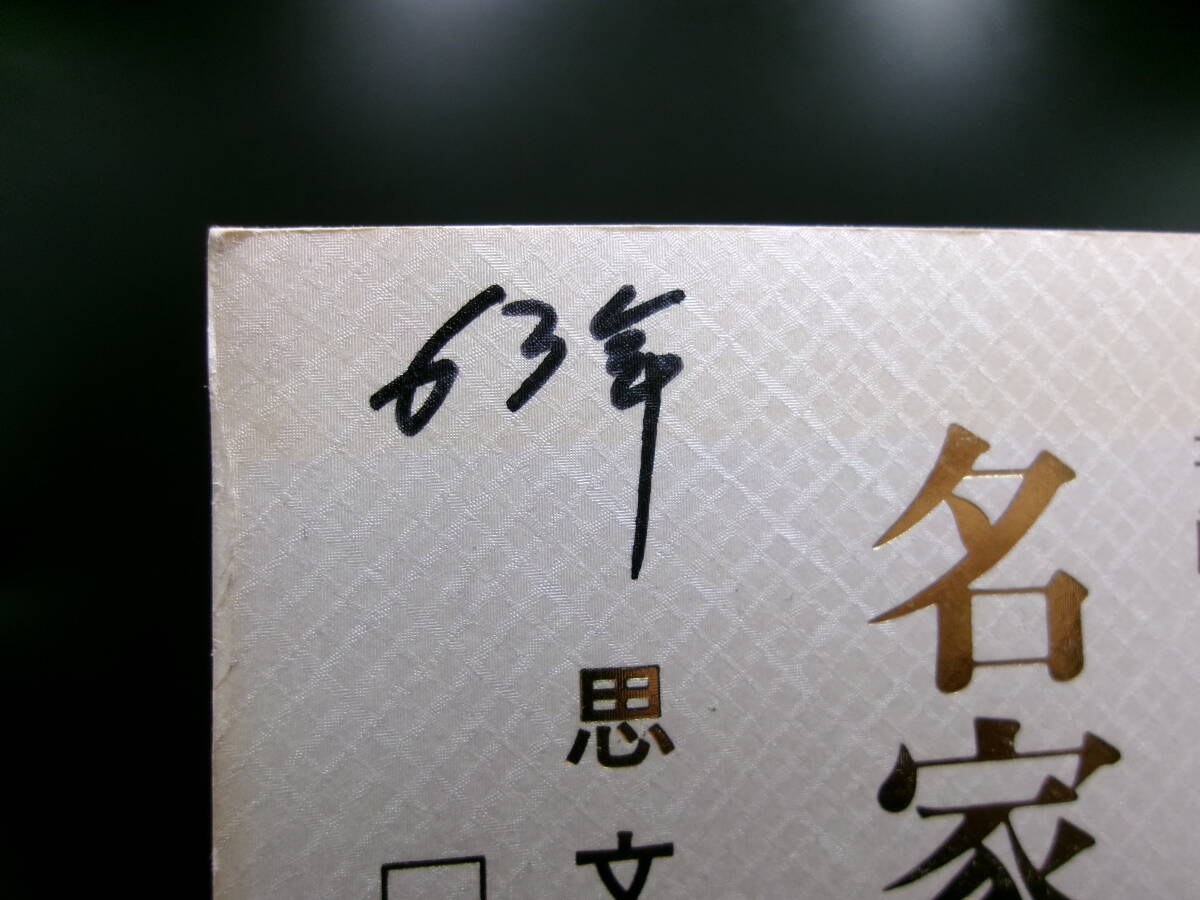 63年
名家
思文